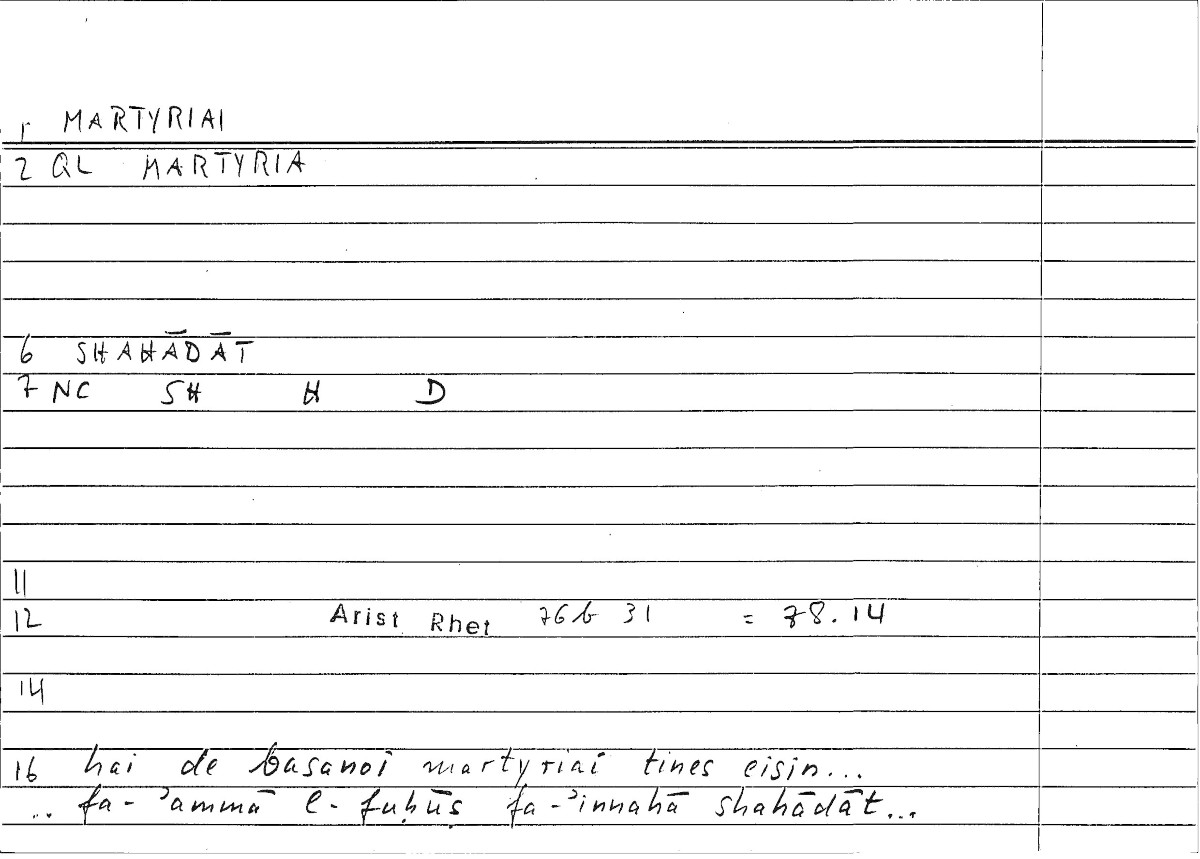 1 MARTYRIAI
2 QL MARTYRIA
6 SHAHĀDĀT
7 NC SH H D
11
12 Arist Rhet 76b 31 = 78.14
14
16 hai de basanoi martyriai tines eisin...
.. fa-ʾammā l-fuḥūṣ fa-ʾinnahā shahādāt...